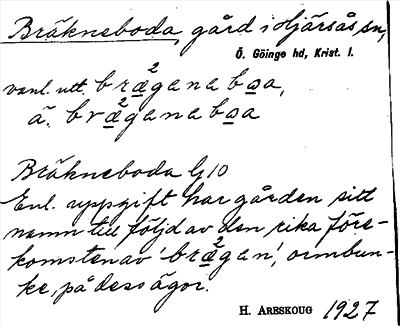 Bräkneboda, gård i Hjärsås sn,
Ö. Göinge hd, Krist. l.
vanl. utt. bræ²ganabɷa,
ä. bræ²ganabɷa
Bräkneboda G10
Enl. uppgift har gården sitt
namn till följd av den rika före-
komsten av 'bræ²gan', ormbun-
ke, på dess ägor.
H. ARESKOUG 1927